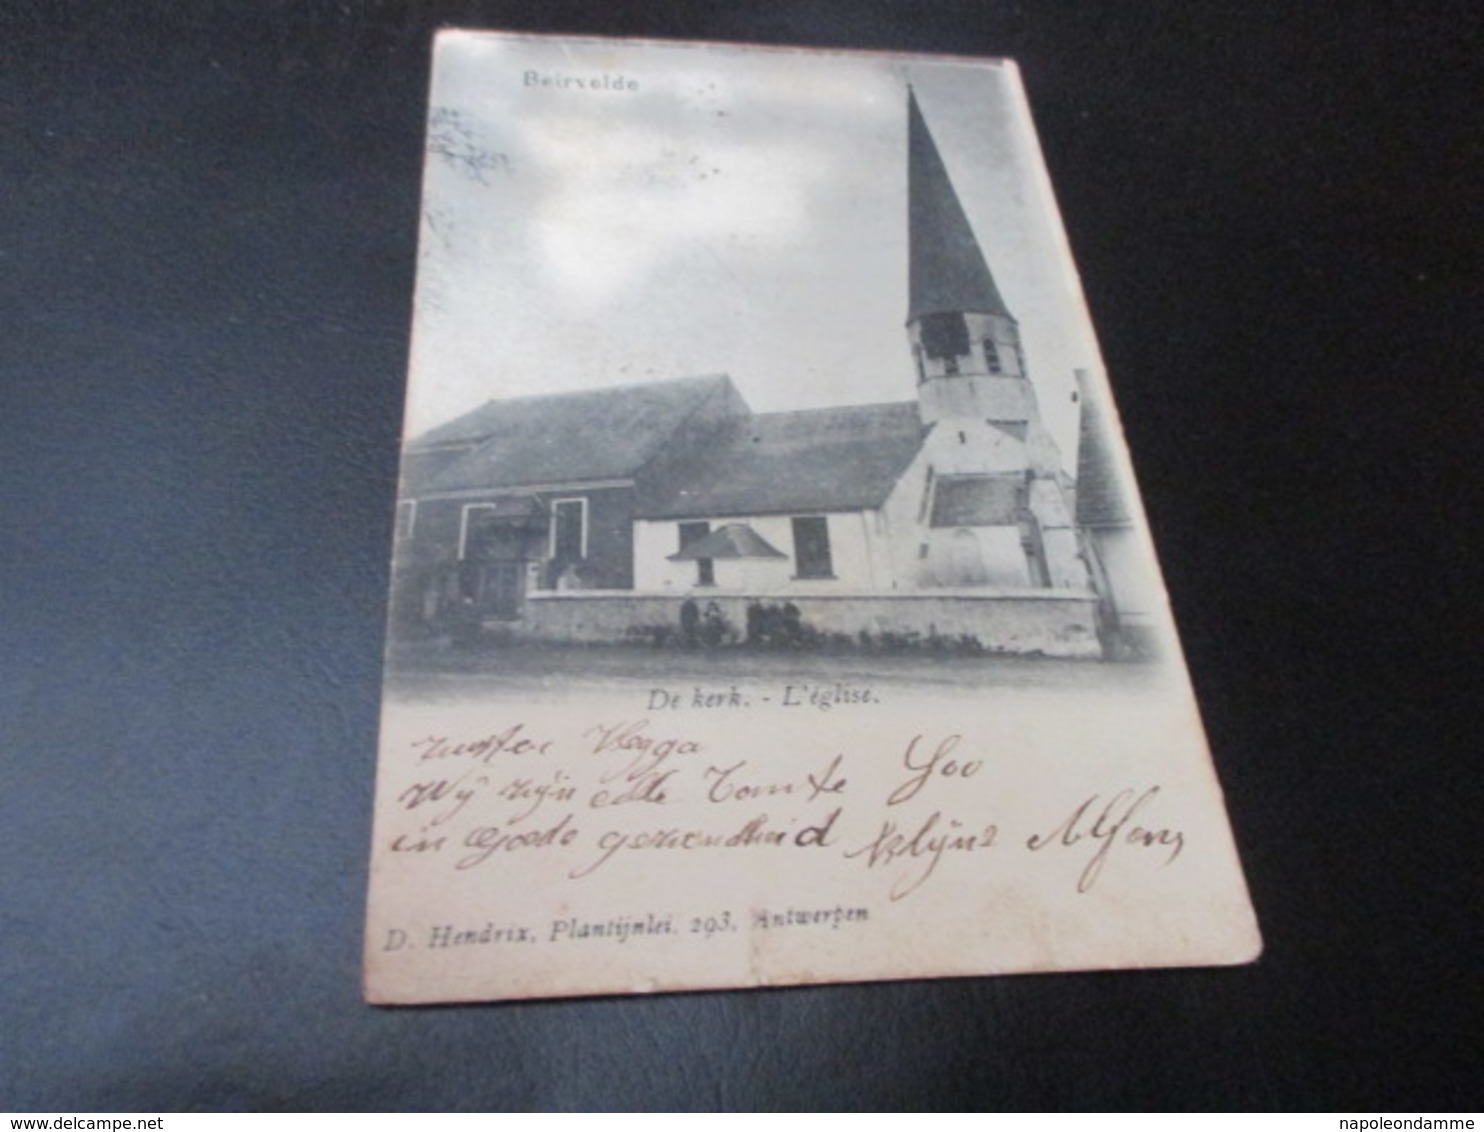 Beirvelde
De kerk. - L'église.
zuster
Wij zijn alle
in goede gezondheid Alfons
D. Hendrix, Plantijnlei. 293, Antwerpen
www.delcampe.net
napoleondamme